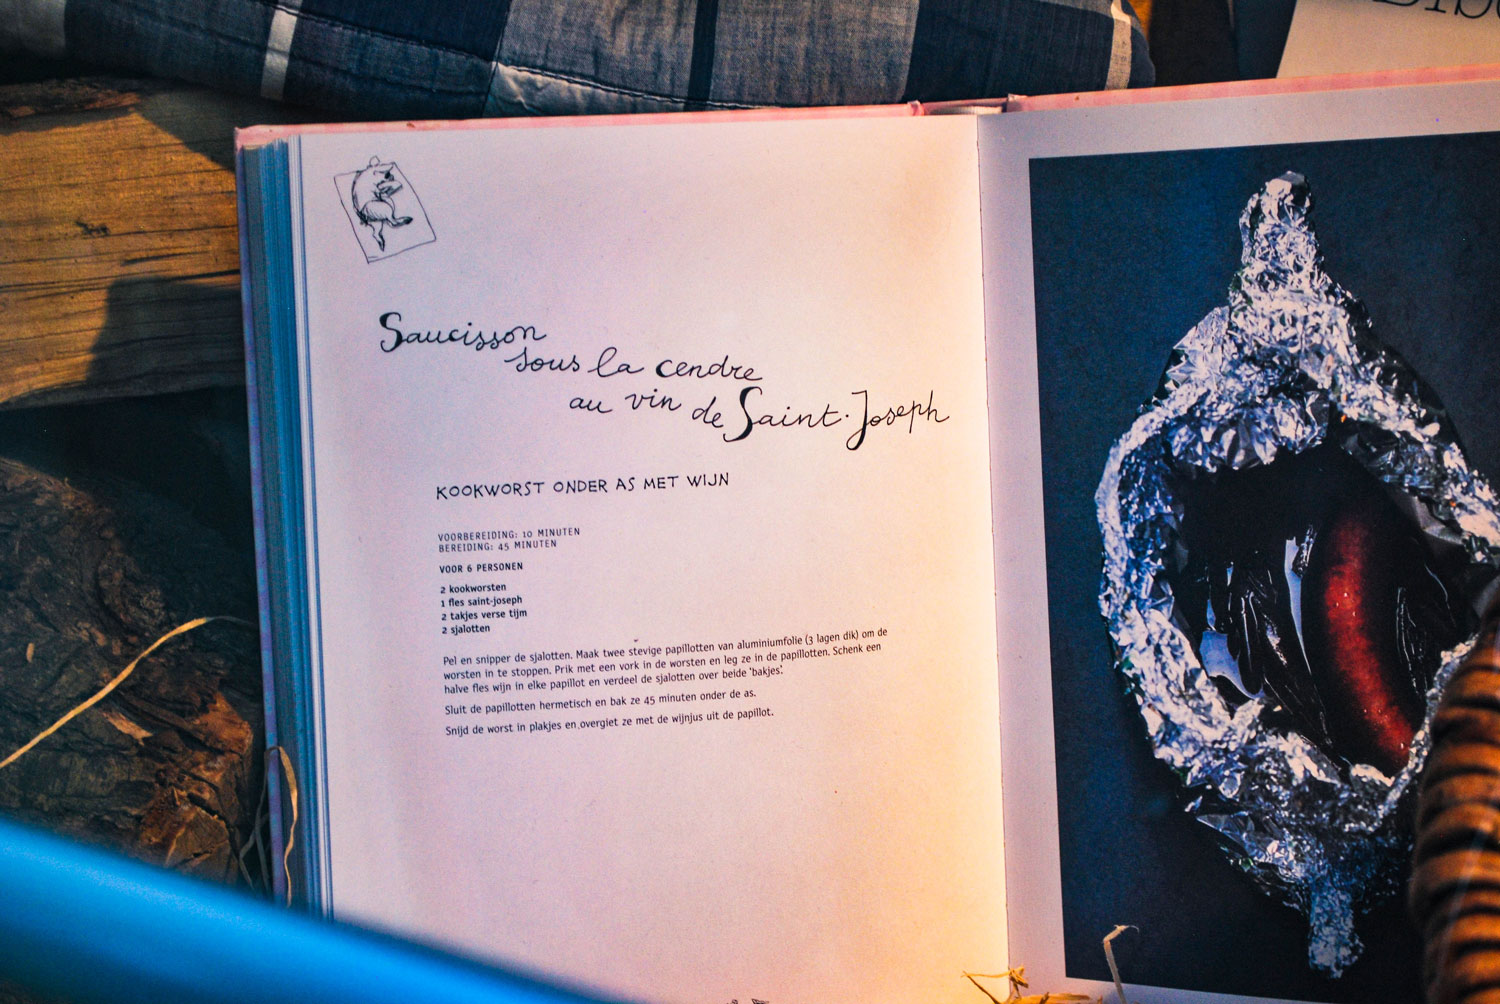 Saucisson
sous la cendre
au vin de Saint-Joseph
KOOKWORST ONDER AS MET WIJN
VOORBEREIDING: 10 MINUTEN
BEREIDING: 45 MINUTEN
VOOR 6 PERSONEN
2 kookworsten
1 fles saint-joseph
2 takjes verse tijm
2 sjalotten
Pel en snipper de sjalotten. Maak twee stevige papillotten van aluminiumfolie (3 lagen dik) om de
worsten in te stoppen. Prik met een vork in de worsten en leg ze in de papillotten. Schenk een
halve fles wijn in elke papillot en verdeel de sjalotten over beide 'bakjes'.
Sluit de papillotten hermetisch en bak ze 45 minuten onder de as.
Snijd de worst in plakjes en overgiet ze met de wijnjus uit de papillot.